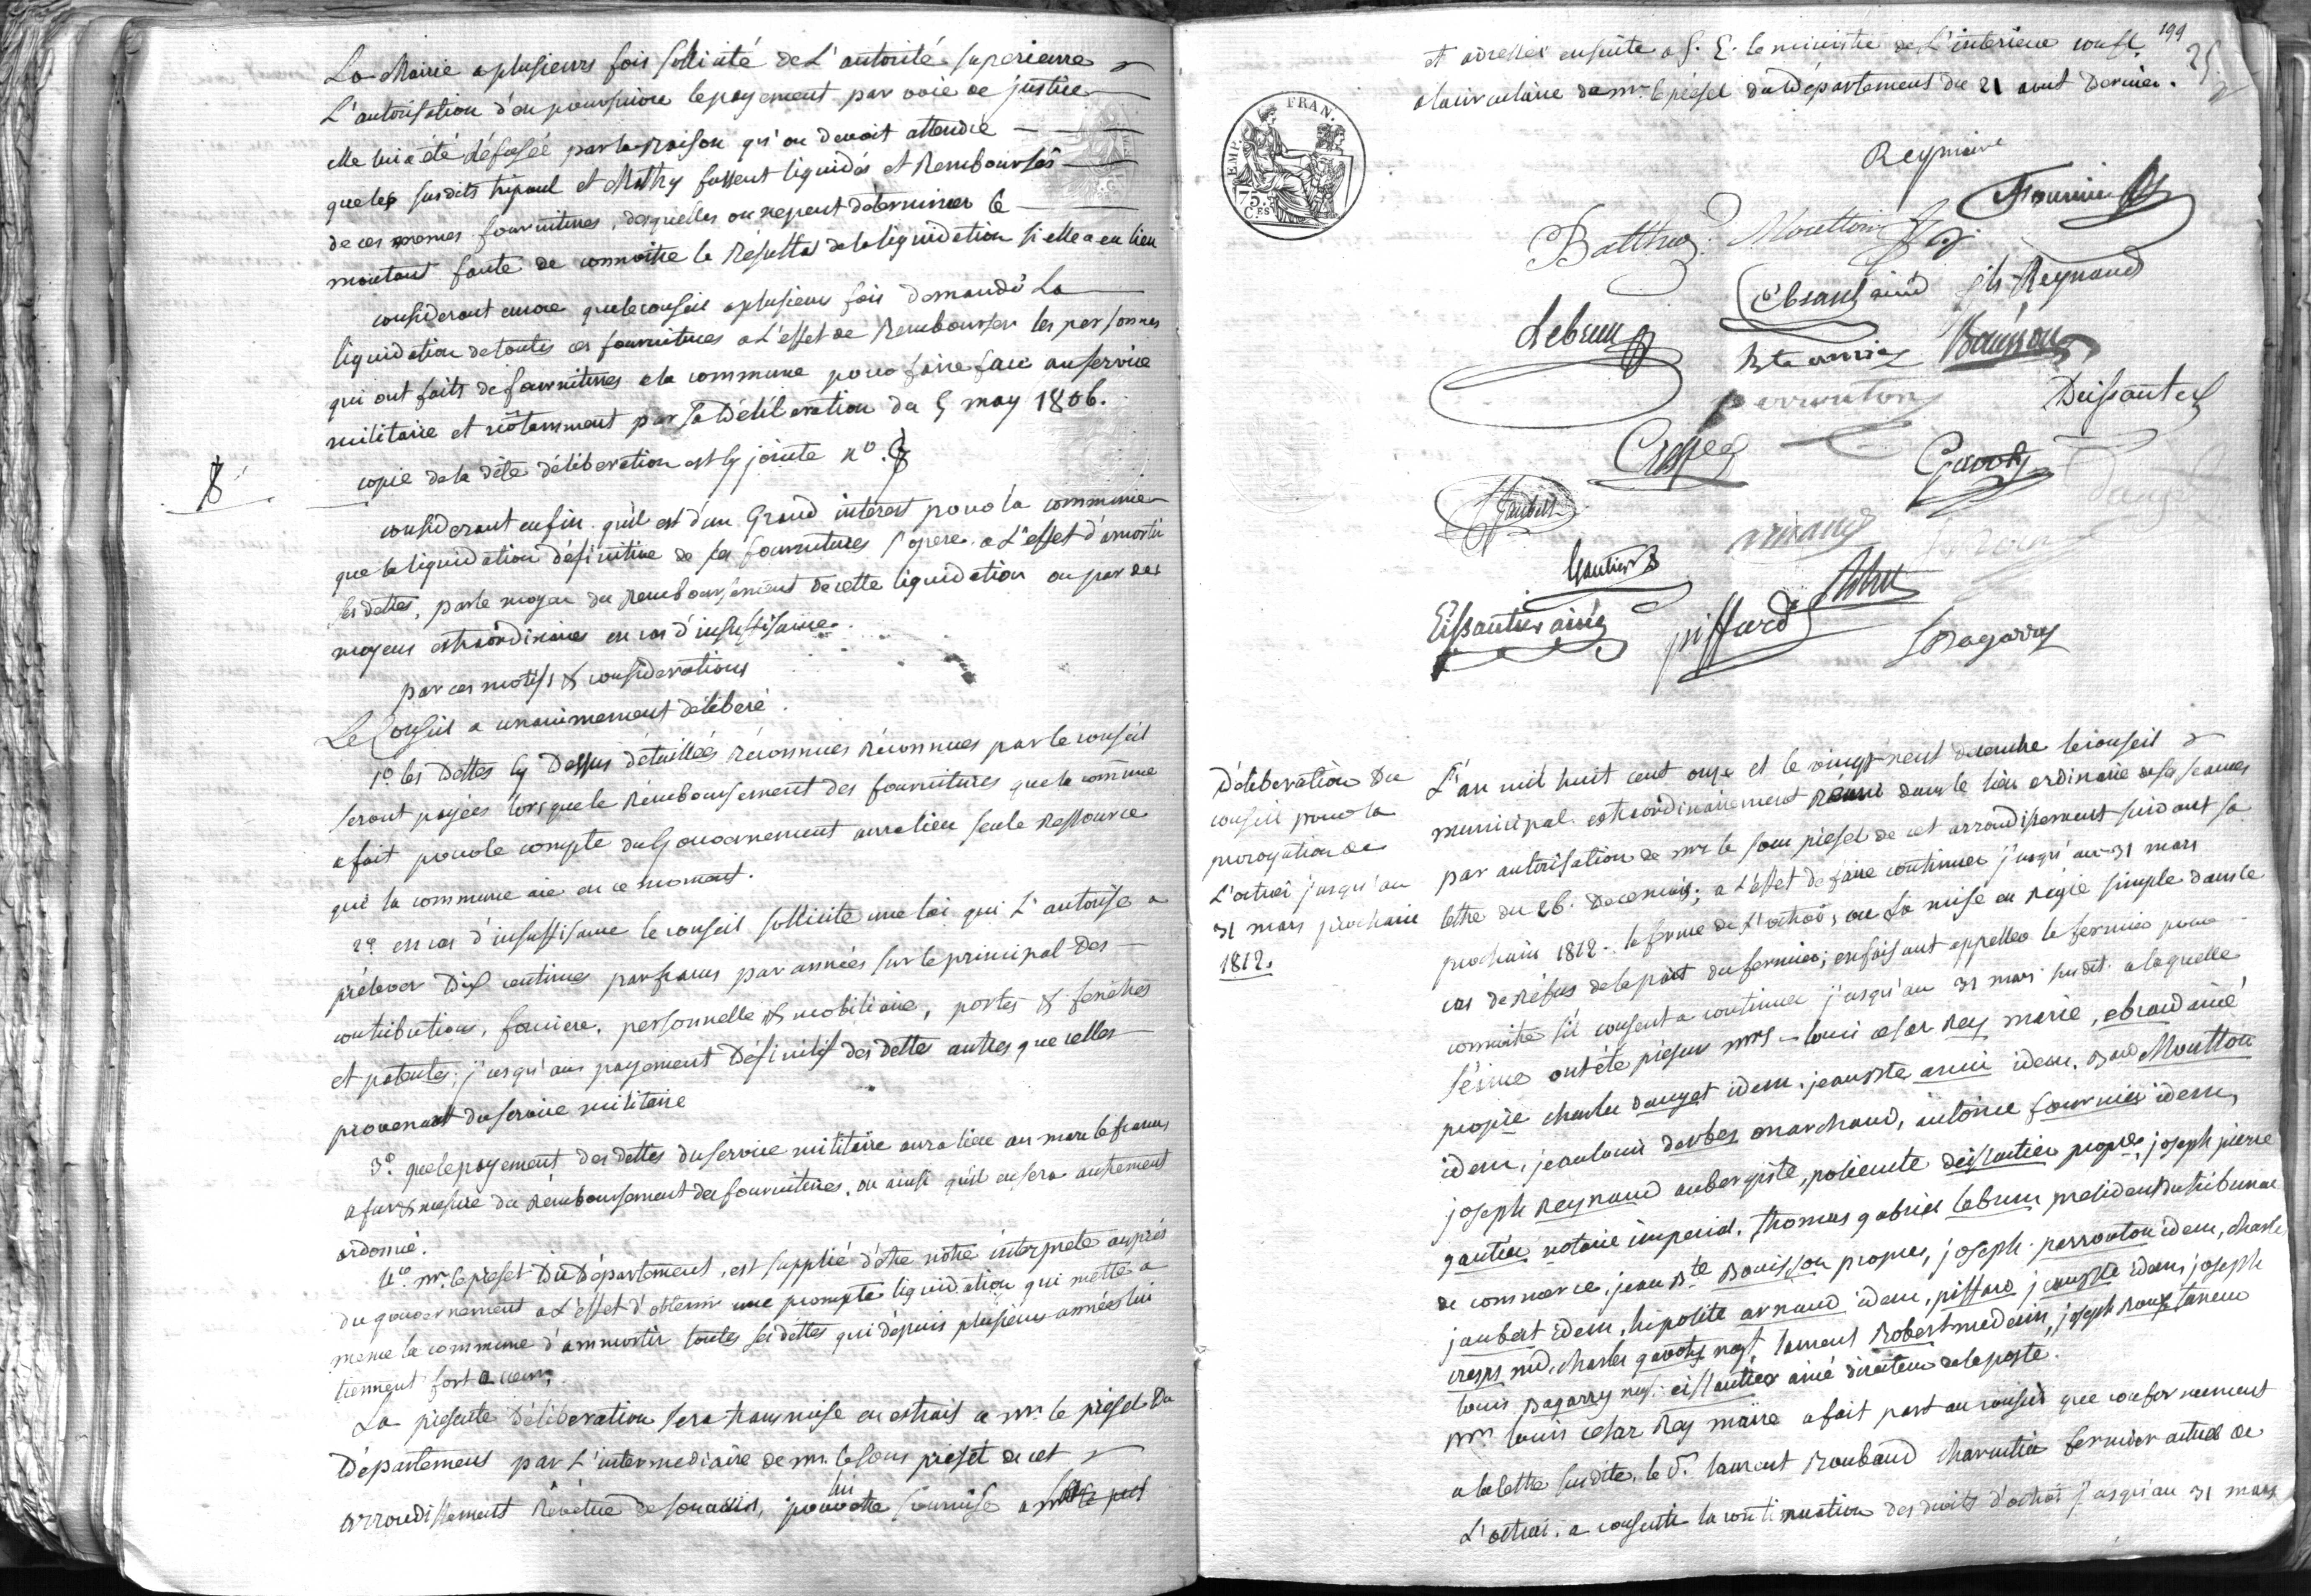 La Mairie a plusieurs fois sollicité de L'autorité superieure
L'autorisation d'en poursuivre le payement par voie de justice
elle lui a été réfusée par la raison qu'on devoit attendre
que les susdits tripoul et Mathy fussent liquidés et Remboursés
de ces memes fournitures, desquelles on ne peut déterminer le
montant faute de connoitre le Résultat de la liquidation si elle a eu lieu
considerant encore que le conseil a plusieurs fois demandé La
liquidation de toutes ces fournitures a L'effet de Rembourser les personnes
qui ont faits de fournitures a la commune pour faire face au service
militaire et nôtamment par sa Déliberation du 5 may 1806.
copie de la dite déliberation est cy jointe n° 8
8
considerant enfin qu'il est d'un Grand interest pour la commune
que la liquidation définitive de ses fournitures s'opere a L'effet d'amortir
ses dettes, par le moyen du remboursement de cette liquidation ou par des
moyens extraordinaires en cas d'insuffisance.
par ces motifs & considerations
Le Conseil a unanimement délibéré.
1° les Dettes cy Dessus détaillées réconnues réconnues par le conseil
seront payées lorsque le rémboursement des fournitures que la comune
a fait pour le compte du Gouvernement aura lieu seule Ressource
que la commune aie en ce moment.
2° en cas d'insuffisance le conseil sollicite une loi qui L'autorise a
prélever Dix centimes par francs par années sur le principal Des
contributions, fonciere, personnelle & mobiliaire, portes & fenêtres
et patentes; jusqu'au payement Définitif des dettes autres que celles
provenant du service militaire
3°. que le payement des dettes du service militaire aura lieu au marc le franc,
a fur & mesure du rémboursement des fournitures, ou ainsi qu'il en sera autrement
ordonné.
4° mr. le préfet Du Département, est supplié d'étre nôtre interprete auprés
du gouvernement a L'éffet d'obtenir une prompte liquidation qui mette a
meme la commune d'ammortir toutes ses dettes qui dépuis plusieurs années lui
tiennent fort a coeur;
La présente Déliberation sera transmise en extrait a mr. le préfet Du
Département par L'intermediaire de mr. le sous préfet de cet
arrondissement Révétue de son avis, pour lui etre soumise
199
25
et adresser ensuite a S. E. le ministre de L'interieur conf.
a la circulaire de mr. le préfet du Département du 21 aout Dernier.
TEMP. FRAN.
75. Ces
Reymaire
Fournier
Moutton
Ebrard ainé
Jh Reynaud
Lebrun
Bte amic
Bouisson
perrouton
Deissautier
Crespy
Gavoty
Jaubert
arnaud
Gautier
Eissautier ainé
piffard
LBagarry
Déliberation Du
conseil pour la
prorogation de
L'octroi jusqu'au
31 mars prochain
1812.
L'an mil huit cent onze et le vingt neuf decembre le conseil
municipal extraordinairement Réuni dans le lieu ordinaire de ses seances
par autorisation de mr. le sous préfet de cet arrondissement suivant sa
lettre du 26. Decembre; a L'éffet de faire continuer jusqu'au 31 mars
prochain 1812 - la ferme de L'octroi, ou sa mise en Régie simple dans le
cas de réfus de la part du fermier; en faisant appeller le fermier pour
connoitre s'il consent a continuer jusqu'au 31 mars susdit. a laquelle
séance ont été présens mrs - louis cesar Rey maire, ebrard ainé
propre charles dauzet idem, jean Bte amic idem, Moutton
idem, jean louis darbes marchand, antoine fournier idem,
joseph Reynaud aubergiste, policarte deissautier propre, joseph pierre
gautier notaire imperial, thomas gabriel lebrun president du tribunal
de commerce, jean Bte Bouisson propre, joseph perrouton idem, charles
jaubert idem, hipolite arnaud idem, piffard j cousste idem, joseph
crespy md, charles gavoty negt, laurent Robert medecin, joseph Roux taneur
louis Bagarry negt. eissautier ainé directeur de la poste.
mr. louis cesar Rey maire a fait part au conseil que conformement
a la lettre susdite, le Sr. laurent Roubaud charcutier fermier actuel de
L'octroi. a consenti la continuation des droits d'octroi jusqu'au 31 mars